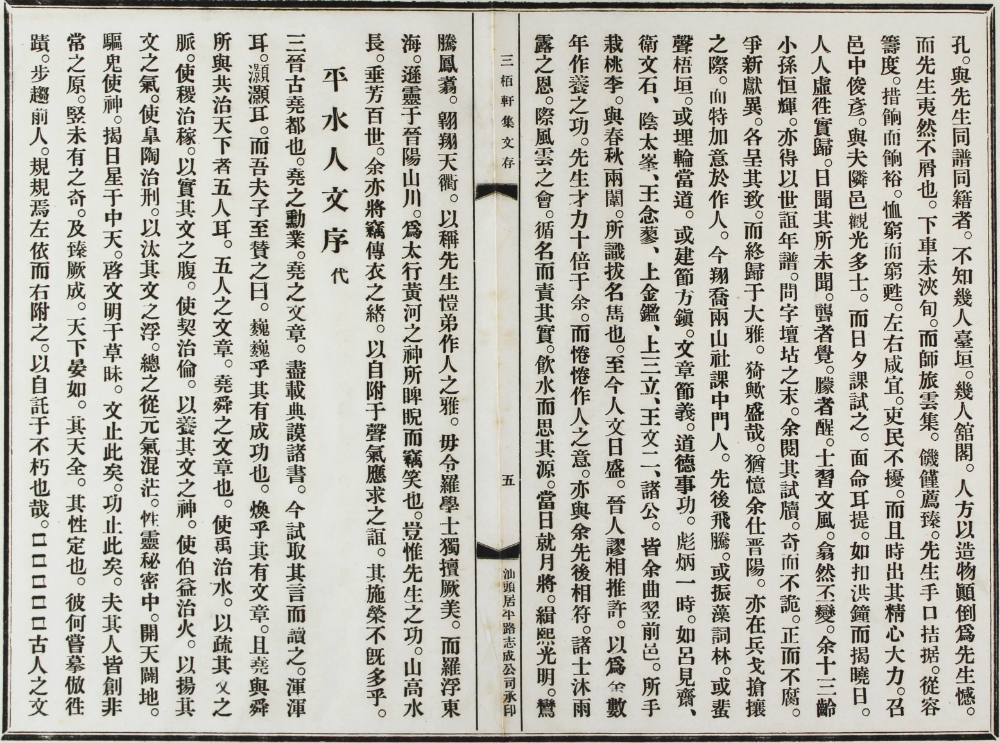 孔。與先生同譜同籍者。不知幾人臺垣。幾人舘閣。人方以造物顚倒爲先生憾。
而先生夷然不屑也。下車未浹旬。而師旅雲集。饑僅薦臻。先生手口拮据。從容
籌度。措餉而餉裕。恤窮而窮甦。左右咸宜。吏民不擾。而且時出其精心大力。召
邑中俊彥。與夫隣邑觀光多士。而日夕課試之。面命耳提。如扣洪鐘而揭曉日。
人人虛徃實歸。日聞其所未聞。聾者覺。矇者醒。士習文風。翕然丕變。余十三齡
小孫恒輝。亦得以世誼年譜。問字壇坫之末。余閱其試牘。奇而不詭。正而不腐。
爭新獻異。各呈其致。而終歸于大雅。猗歟盛哉。猶憶余仕晋陽。亦在兵戈搶攘
之際。而特加意於作人。今翔喬兩山社課中門人。先後飛騰。或振藻詞林。或蜚
聲梧垣。或埋輪當道。或建節方鎭。文章節義。道德事功。彪炳一時。如呂見齋、
衛文石、陰太峯、王念蓼、上金鑑、上三立、王文二、諸公。皆余曲翌前邑。所手
栽桃李。與春秋兩闈。所識拔名雋也。至今人文日盛。晉人謬相推許。以爲余數
年作養之功。先生才力十倍于余。而惓惓作人之意。亦與余先後相符。諸士沐雨
露之恩。際風雲之會。循名而責其實。飮水而思其源。當日就月將。緝熙光明。鸞
騰鳳翥。翱翔天衢。以稱先生愷弟作人之雅。毋令羅學士獨擅厥美。而羅浮東
海。遜靈于晉陽山川。爲太行黃河之神所睥睨而竊笑也。豈惟先生之功。山高水
長。垂芳百世。余亦將竊傳衣之緖。以自附于聲氣應求之誼。其施榮不旣多乎。
平水人文序 代
三晉古堯都也。堯之勳業。堯之文章。盡載典謨諸書。今試取其言而讀之。渾渾
耳。灝灝耳。而吾夫子至贊之曰。巍巍乎其有成功也。煥乎其有文章。且堯與舜
所與共治天下者五人耳。五人之文章。堯舜之文章也。使禹治水。以疏其文之
脈。使稷治稼。以實其文之腹。使契治倫。以養其文之神。使伯益治火。以揚其
文之氣。使皐陶治刑。以汰其文之浮。總之從元氣混茫。性靈秘密中。開天闢地。
驅鬼使神。揭日星于中天。啓文明于草昧。文止此矣。功止此矣。夫其人皆創非
常之原。竪未有之奇。及臻厥成。天下晏如。其天全。其性定也。彼何嘗摹倣徃
蹟。步趨前人。規規焉左依而右附之。以自託于不朽也哉。口口口口口古人之文
三栢軒集文存
五
汕頭居平路志成公司承印